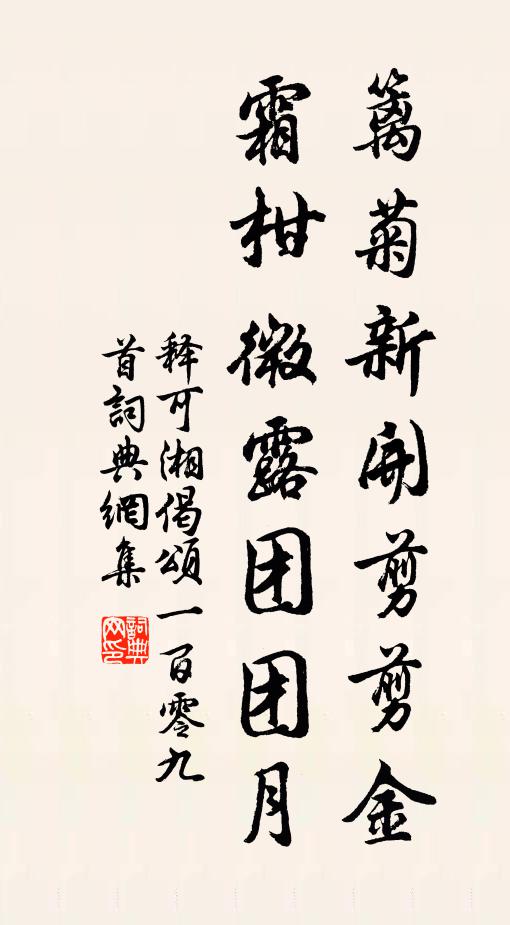 籬菊新開剪剪金
霜柑微露团团月
释可湘偈頌一百零九
首詞典網集
詞典網印